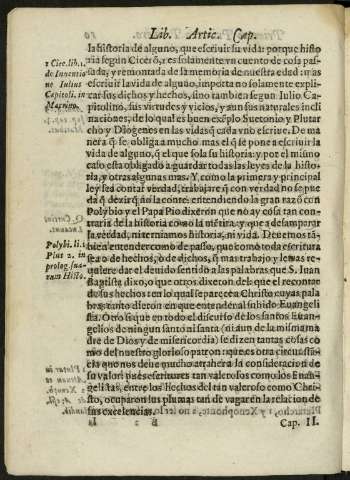 Lib. Artic. Cap.
la historia de alguno, que escriuir su vida: porque histo
ria según Cicerõ, r es solamente vn cuento de cosa pas-
sada, y remontada de la memoria de nuestra edad: mas
escriuir la vida de alguno, importa no solamente expli-
car sus dichos, y hechos, sino tambien segun Iulio Ca-
pitolino, sus virtudes y vicios, y aun sus naturales incli
naciones, de lo qual es buen exēplo Suetonio y Plutar
cho y Diogenes en las vidas q̃ cada vno escriue. De ma
nera q̃ se obliga a mucho mas el q̃ se pone a escriuir la
vida de alguno, q̃ el que sola su historia: y por el mismo
caso esta obligado a guardar todas las leyes de la histo-
ria, y otras algunas mas. Y como la primera y principal
ley sea contar verdad, trabajare q̃ con verdad no se pue
da q̃ dezir q̃ no la conte: entendiendo la gran razõ con
Polybio y el Papa Pio dixerõn que no ay cosa tan con-
traria de la historia como la mētira, y que a desamparar
la verdad, ni terniamos historia, ni vida. Deuemos tã-
bien entender como de passo, que como toda escritura
sea o de hechos, o de dichos, q̃ mas trabajo y lemas re-
quiere dar el deuido sentido a las palabras que S. Iuan
Baptista dixo, o que otros dixeron del: que el recontar
de sus hechos en lo qual se parece a Christo cuyas pala
bras, tanto dieron en que entender al subido Euangeli
sta. Otrosi que en todo el discurso de los santos Euan-
gelios de ningun santo ni santa (ni aun de la misma ma
dre de Dios y de misericordia) se dizen tantas cosas co
mo del nuestro glorioso patron: que es otra circunstã-
cia que nos deue mucho atraher a la consideracion de
su valor: pues escritores tan valerosos como los Euan-
gelistas, entre los hechos del tan valeroso como Chri-
sto, ocuparon sus plumas tan de vagar en la relacion de
sus excelencias.
Cap. II.
1 Cice. lib. 1.
de Inuentio
ne Iulius
Capitoli. in
Maxrino.
Polybi. li. 1
Pius 2. in
prolog. sua-
rum Histo.